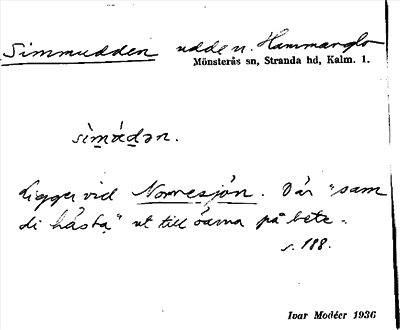 Simmudden udde n. Hammarglo
Mönsterås sn, Stranda hd, Kalm. 1.
sìmádən.
Ligger vid Norresjön. Där "sam
di hästa" ut till öarna på bete.
s. 188.
Ivar Modéer 1936